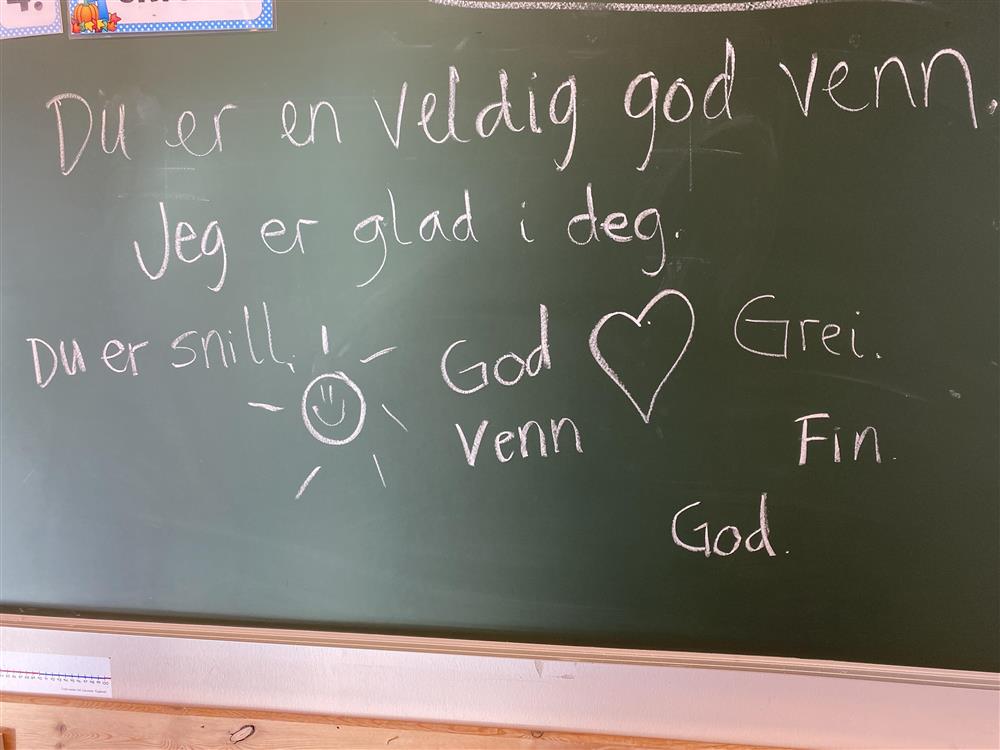 4.
Du er en veldig god venn.
Jeg er glad i deg.
Du er snill.
God
venn
Grei.
Fin.
God.